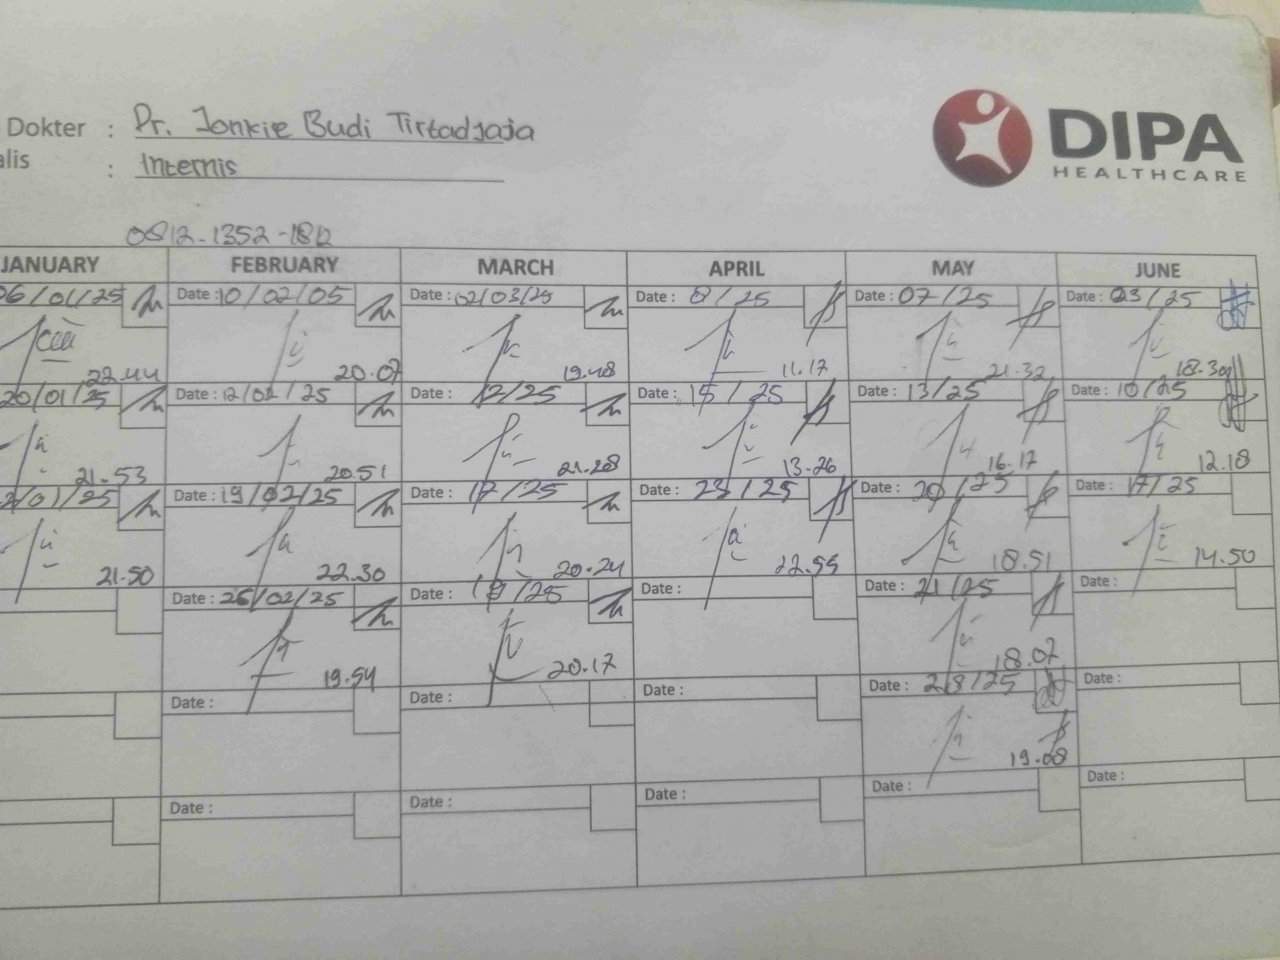 Dokter : Dr. Jonkie Budi Tirtadjaja
alis : Internis
DIPA
HEALTHCARE
JANUARY FEBRUARY MARCH APRIL MAY JUNE
06/01/25 Date : 10/02/05 Date : 02/03/25 Date : 8/25 Date : 07/25 Date : 03/25
22.44 20.07 19.48 11.17 21.32 18.30
20/01/25 Date : 12/02/25 12/25 Date : 15/25 Date : 13/25 Date : 10/25
21.53 20.51 21.28 13.26 16.17 12.18
/01/25 Date : 19/02/25 Date : 17/25 Date : 23/25 Date : 20/25 Date : 17/25
21.50 22.30 20.24 22.55 18.51 14.50
Date : 26/02/25 Date : 19/25 Date : Date : 21/25 Date :
19.54 20.17 18.07
Date : Date : Date : Date : 28/25 Date :
19.08
Date : Date : Date : Date : Date :